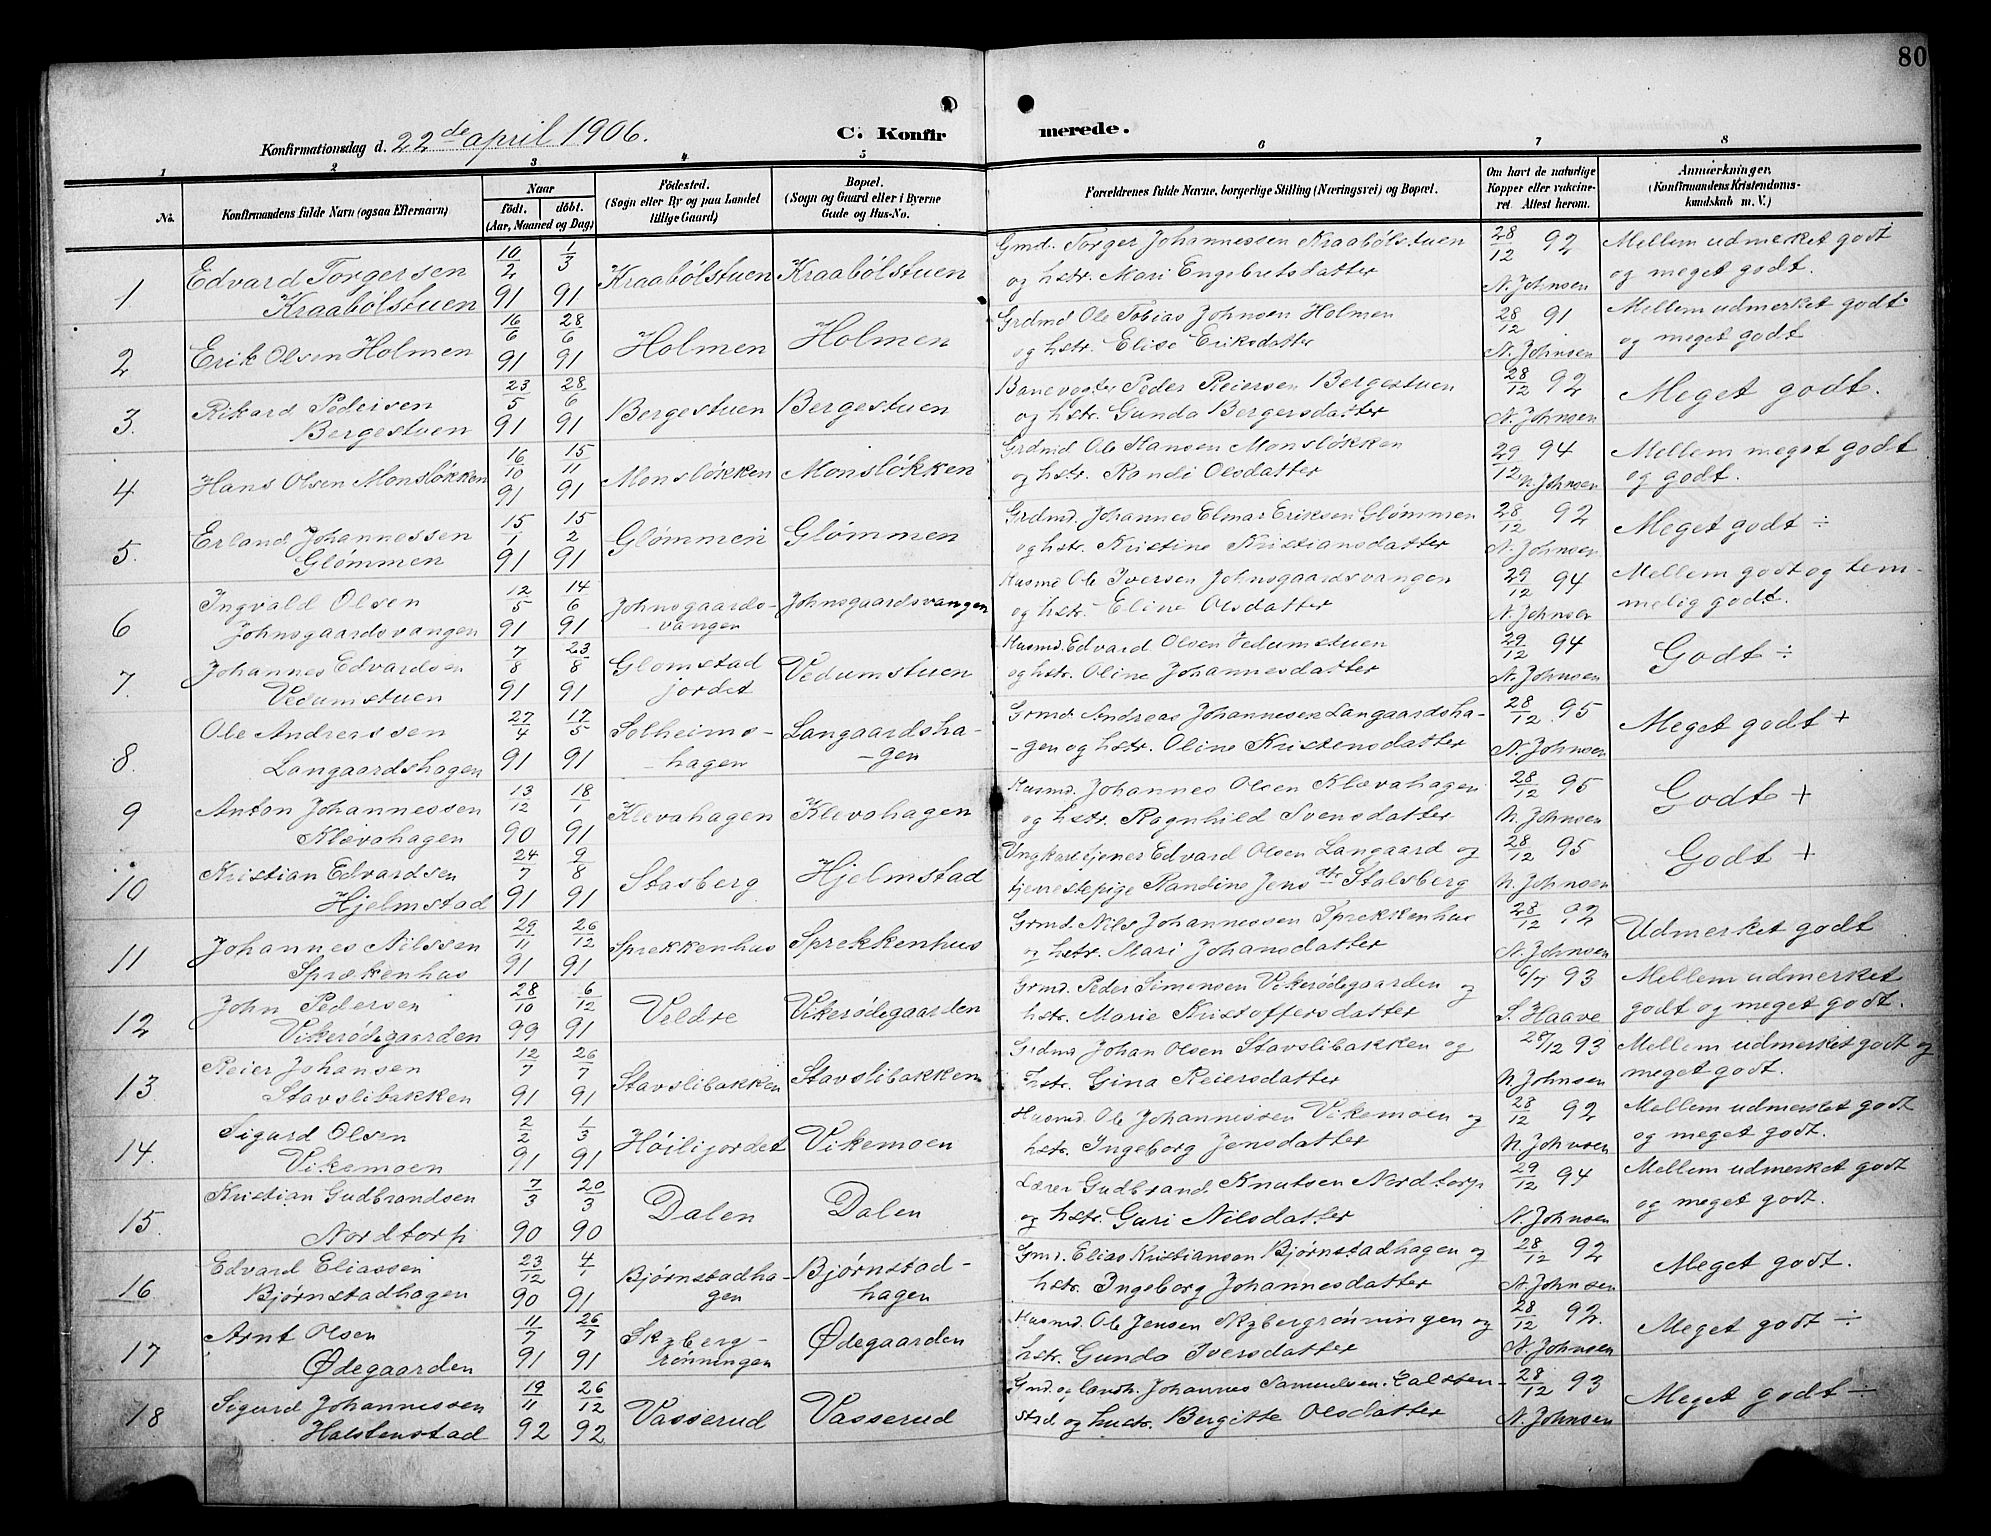 80
Konfirmationsdag d. 22de april 1906.
C. Konfir merede.
1 2 3 4 5 6 7 8
No.
Konfirmandens fulde Navn (ogsaa Efternavn)
Naar
født, døbt.
(Aar, Maaned og Dag)
Fødested.
(Sogn eller By og paa Landet
tillige Gaard)
Bopæl.
(Sogn og Gaard eller i Byerne
Gade og Hus-No.
Forældrenes fulde Navne, borgerlige Stilling (Næringsvei) og Bopæl.
Om havt de naturlige
Kopper eller vakcine-
ret Attest herom.
Anmærkninger,
(Konfirmandens Kristendoms-
kundskab m. V.)
1 Edvard Torgersen
Kraabølstuen
10/2 91 1/3 91 Kraabølstuen Kraabølstuen
Gmd. Torger Johannessen Kraabølstuen
og hstr. Mari Engebretsdatter
28/12 92
N. Johnsen
Mellem udmerket godt
og meget godt.
2 Erik Olsen Holmen
16/6 91 28/6 91 Holmen Holmen
Grdmd Ole Tobias Johnsen Holmen
og hstr. Elise Eriksdatter
28/12 91
N. Johnsen
Mellem udmerket godt
og meget godt
3. Rikard Pedersen
Bergestuen
23/5 91 28/6 91 Bergestuen Bergestuen
Banevogter Peder Reiersen Bergestuen
og hstr. Gunda Bergersdatter
28/12 92
N. Johnsen
Meget godt.
4 Hans Olsen Monsløkken
16/10 91 15/11 91 Monsløkken Monsløkken
Grdmd Ole Hansen Monsløkken
og hstr. Randi Olsdatter
29/12 94
N. Johnsen
Mellem meget godt
og godt.
5. Erland Johannessen
Glømmen
15/1 91 15/2 91 Glømmen Glømmen
Grdmd. Johannes Elmar Eriksen Glømmen
og hstr. Kristine Kristiansdatter
28/12 92
N. Johnsen
Meget godt ÷
6 Ingvald Olsen
Johnsgaardsvangen
12/5 91 14/6 91 Johnsgaards-
vangen
Johnsgaardsvangen
Husmd Ole Iversen Johnsgaardsvangen
og hstr. Eline Olsdatter
29/12 94
N. Johnsen
Mellem godt og tem-
melig godt.
7. Johannes Edvardsen
Vedumstuen
7/8 91 23/8 91 Glomstad
jordet
Vedumstuen
Husmd. Edvard Olsen Vedumstuen
og hstr. Oline Johannesdatter
29/12 94
N. Johnsen
Godt ÷
8. Ole Andreassen
Langaardshagen
27/4 91 17/5 91 Solheims-
-hagen
Langaardsha-
-gen
Grmd. Andreas Johannesen Langaardsha-
-gen og hstr. Oline Kristensdatter
28/12 95
N. Johnsen
Meget godt +
9 Anton Johannessen
Klævahagen
13/12 90 18/1 91 Klevahagen Klevahagen
Husmd. Johannes Olsen Klævahagen
og hstr. Ragnhild Svensdatter
28/12 95
N. Johnsen
Godt +
10 Kristian Edvardsen
Hjelmstad
24/7 91 9/8 91 Stasberg Hjelmstad
Ungkarl tjener Edvard Olsen Langaard og
tjenestepige Randine Jensdtr Stalsberg
28/12 95
N. Johnsen
Godt +
11 Johannes Nilssen
Sprækenhus
29/11 91 26/12 91 Sprekkenhus Sprekkenhus
Grmd. Nils Johannessen Sprekkenhus
og hstr. Mari Johansdatter
28/12 92
N. Johnsen
Udmerket godt
12 John Pedersen
Vikerødegaarden
28/10 99 6/12 91 Veldre Vikerødegaarden
Grmd. Peder Simensen Vikerødegaarden og
hstr. Marie Kristoffersdatter
6/7 93
S. Haave
Mellem udmerket
godt og meget godt.
13 Reier Johansen
Stavslibakken
12/7 91 26/7 91 Stavslibakken Stavslibakken
Grdmd Johan Olsen Stavslibakken og
hstr. Gina Reiersdatter
28/12 93
N. Johnsen
Mellem udmerket godt og
meget godt.
14. Sigurd Olsen
Vikemoen
2/2 91 1/3 91 Høilijordet Vikemoen
Husmd. Ole Johannessen Vikemoen og
hstr. Ingeborg Jensdatter
28/12 92
N. Johnsen
Mellem udmerket godt
og meget godt.
15. Kristian Gudbrandsen
Nordtorp
7/3 90 20/3 90 Dalen Dalen
Lærer Gudbrand Knutsen Nordtorp
og hstr. Guri Nilsdatter
29/12 94
N. Johnsen
Mellem udmerket godt
og meget godt.
16 Edvard Eliassen
Bjørnstadhagen
23/12 90 4/1 91 Bjørnstadha-
gen
Bjørnstad-
hagen
Gmd. Elias Kristiansen Bjørnstadhagen og
hstr. Ingeborg Johannesdatter
28/12 92
N. Johnsen
Meget godt.
17 Arnt Olsen
Ødegaarden
11/7 91 26/7 91 Skyberg-
rønningen
Ødegaarden
Husmd. Ole Jensen Skybergrønningen og
hstr. Gunda Iversdatter
28/12 92.
N. Johnsen
Meget godt ÷
18 Sigurd Johannessen
Halstenstad
19/11 92 26/12 92 Vasserud Vasserud
Gmd. og landh. Johannes Samuelsen Halsten-
stad og hustr. Bergitte Olsdatter
28/12 93
N. Johnsen
Meget godt ÷